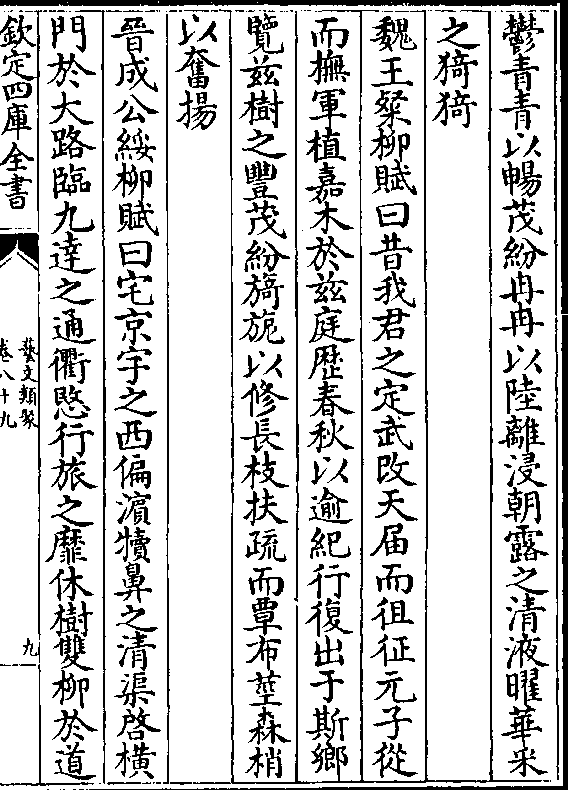 鬱青青以暢茂紛冉冉以陸離浸朝露之清液曜華采
之猗猗
魏王粲柳賦曰昔我君之定武改天届而徂征元子從
而撫軍植嘉木於兹庭歴春秋以逾紀行復出于斯鄉
覽兹樹之豐茂紛旖旎以修長枝扶疏而覃布莖森梢
以奮揚
晉成公綏柳賦曰宅京宇之西偏濵犢鼻之清渠啓横
門於大路臨九逵之通衢愍行旅之靡休樹雙柳於道
欽定四庫全書
藝文類聚
卷八十九
九